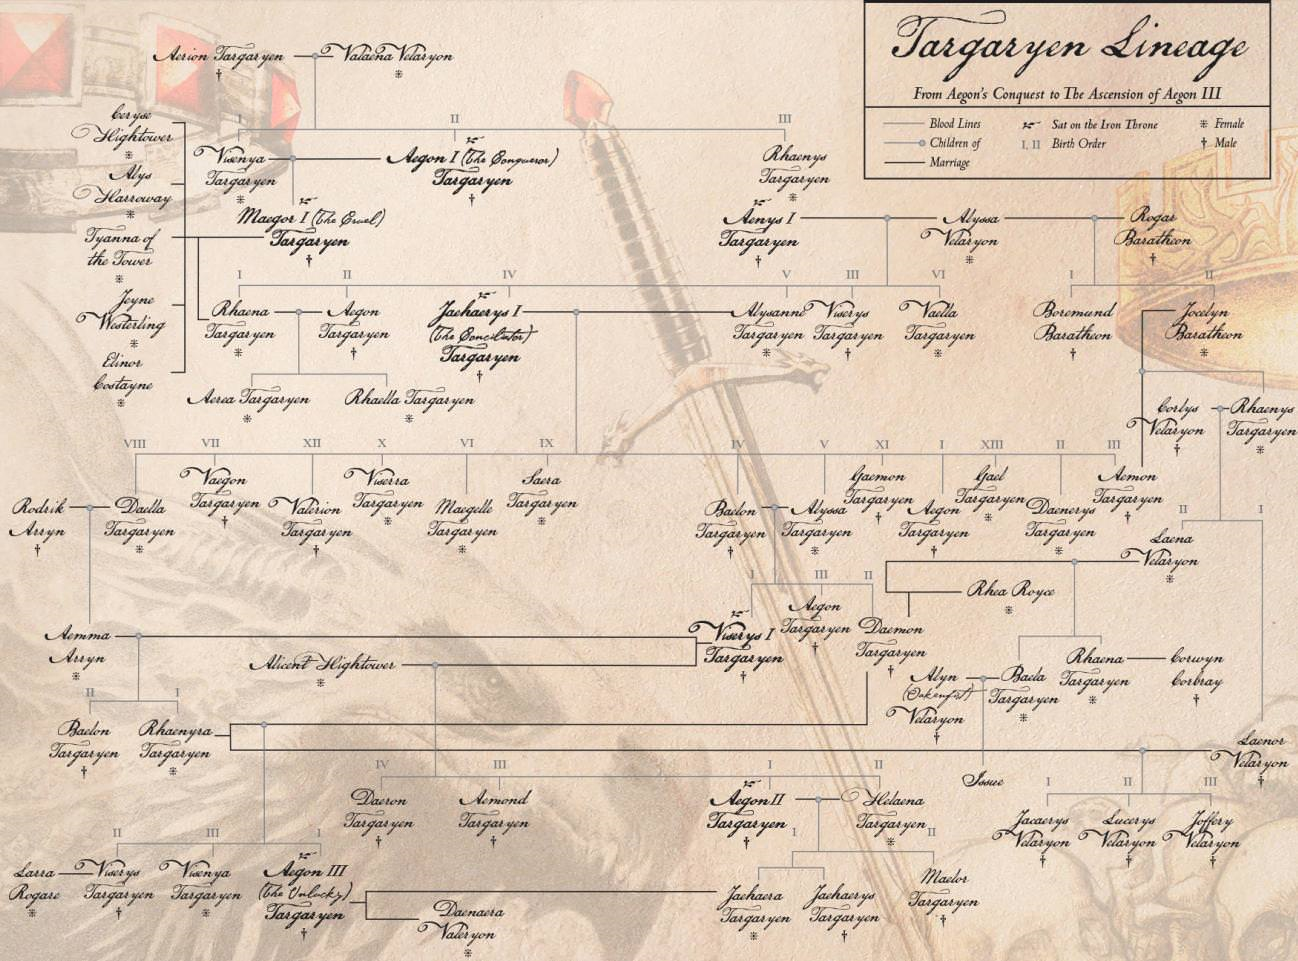 Targaryen Lineage
From Aegon's Conquest to The Ascension of Aegon III
Blood Lines
Children of
Marriage
Sat on the Iron Throne
I, II Birth Order
Female
Male
Aerion Targaryen
Valaena Velaryon
I
II
III
Ceryse
Hightower
Alys
Harroway
Tyanna of
the Tower
Jeyne
Westerling
Elinor
Costayne
Visenya
Targaryen
Aegon I (The Conqueror)
Targaryen
Rhaenys
Targaryen
Maegor I (The Cruel)
Targaryen
Aenys I
Targaryen
Alyssa
Velaryon
Rogar
Baratheon
I
II
IV
V
III
VI
I
II
Rhaena
Targaryen
Aegon
Targaryen
Jaehaerys I
(The Conciliator)
Targaryen
Alysanne
Targaryen
Viserys
Targaryen
Vaella
Targaryen
Boremund
Baratheon
Jocelyn
Baratheon
Aerea Targaryen
Rhaella Targaryen
Corlys
Velaryon
Rhaenys
Targaryen
VIII
VII
XII
X
VI
IX
IV
V
XI
I
XIII
II
III
Rodrik
Arryn
Daella
Targaryen
Vaegon
Targaryen
Valerion
Targaryen
Viserra
Targaryen
Maegelle
Targaryen
Saera
Targaryen
Baelon
Targaryen
Alyssa
Targaryen
Gaemon
Targaryen
Aegon
Targaryen
Gael
Targaryen
Daenerys
Targaryen
Aemon
Targaryen
II
I
Laena
Velaryon
I
III
II
Rhea Royce
Aemma
Arryn
Alicent Hightower
Viserys I
Targaryen
Aegon
Targaryen
Daemon
Targaryen
Alyn
(Oakenfist)
Velaryon
Baela
Targaryen
Rhaena
Targaryen
Corwyn
Corbray
II
I
Baelon
Targaryen
Rhaenyra
Targaryen
Laenor
Velaryon
IV
III
I
II
Issue
I
II
III
Daeron
Targaryen
Aemond
Targaryen
Aegon II
Targaryen
Helaena
Targaryen
Jacaerys
Velaryon
Lucerys
Velaryon
Joffery
Velaryon
II
III
I
I
II
Larra
Rogare
Viserys
Targaryen
Visenya
Targaryen
Aegon III
(The Unlucky)
Targaryen
Daenaera
Valeryon
Jaehaera
Targaryen
Jaehaerys
Targaryen
Maelor
Targaryen